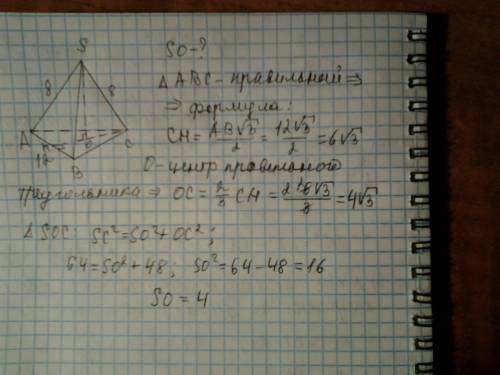 S
SO-?
8
8
△ABC - правильный ⇒
⇒ формула:
A
C
12
O
B
CH = AB√3/2 = 12√3/2 = 6√3
O-центр правильного
треугольника ⇒ OC = 2/3 CH = 2·6√3/3 = 4√3
△SOC: SC² = SO² + OC²;
64 = SO² + 48; SO² = 64 - 48 = 16
SO = 4